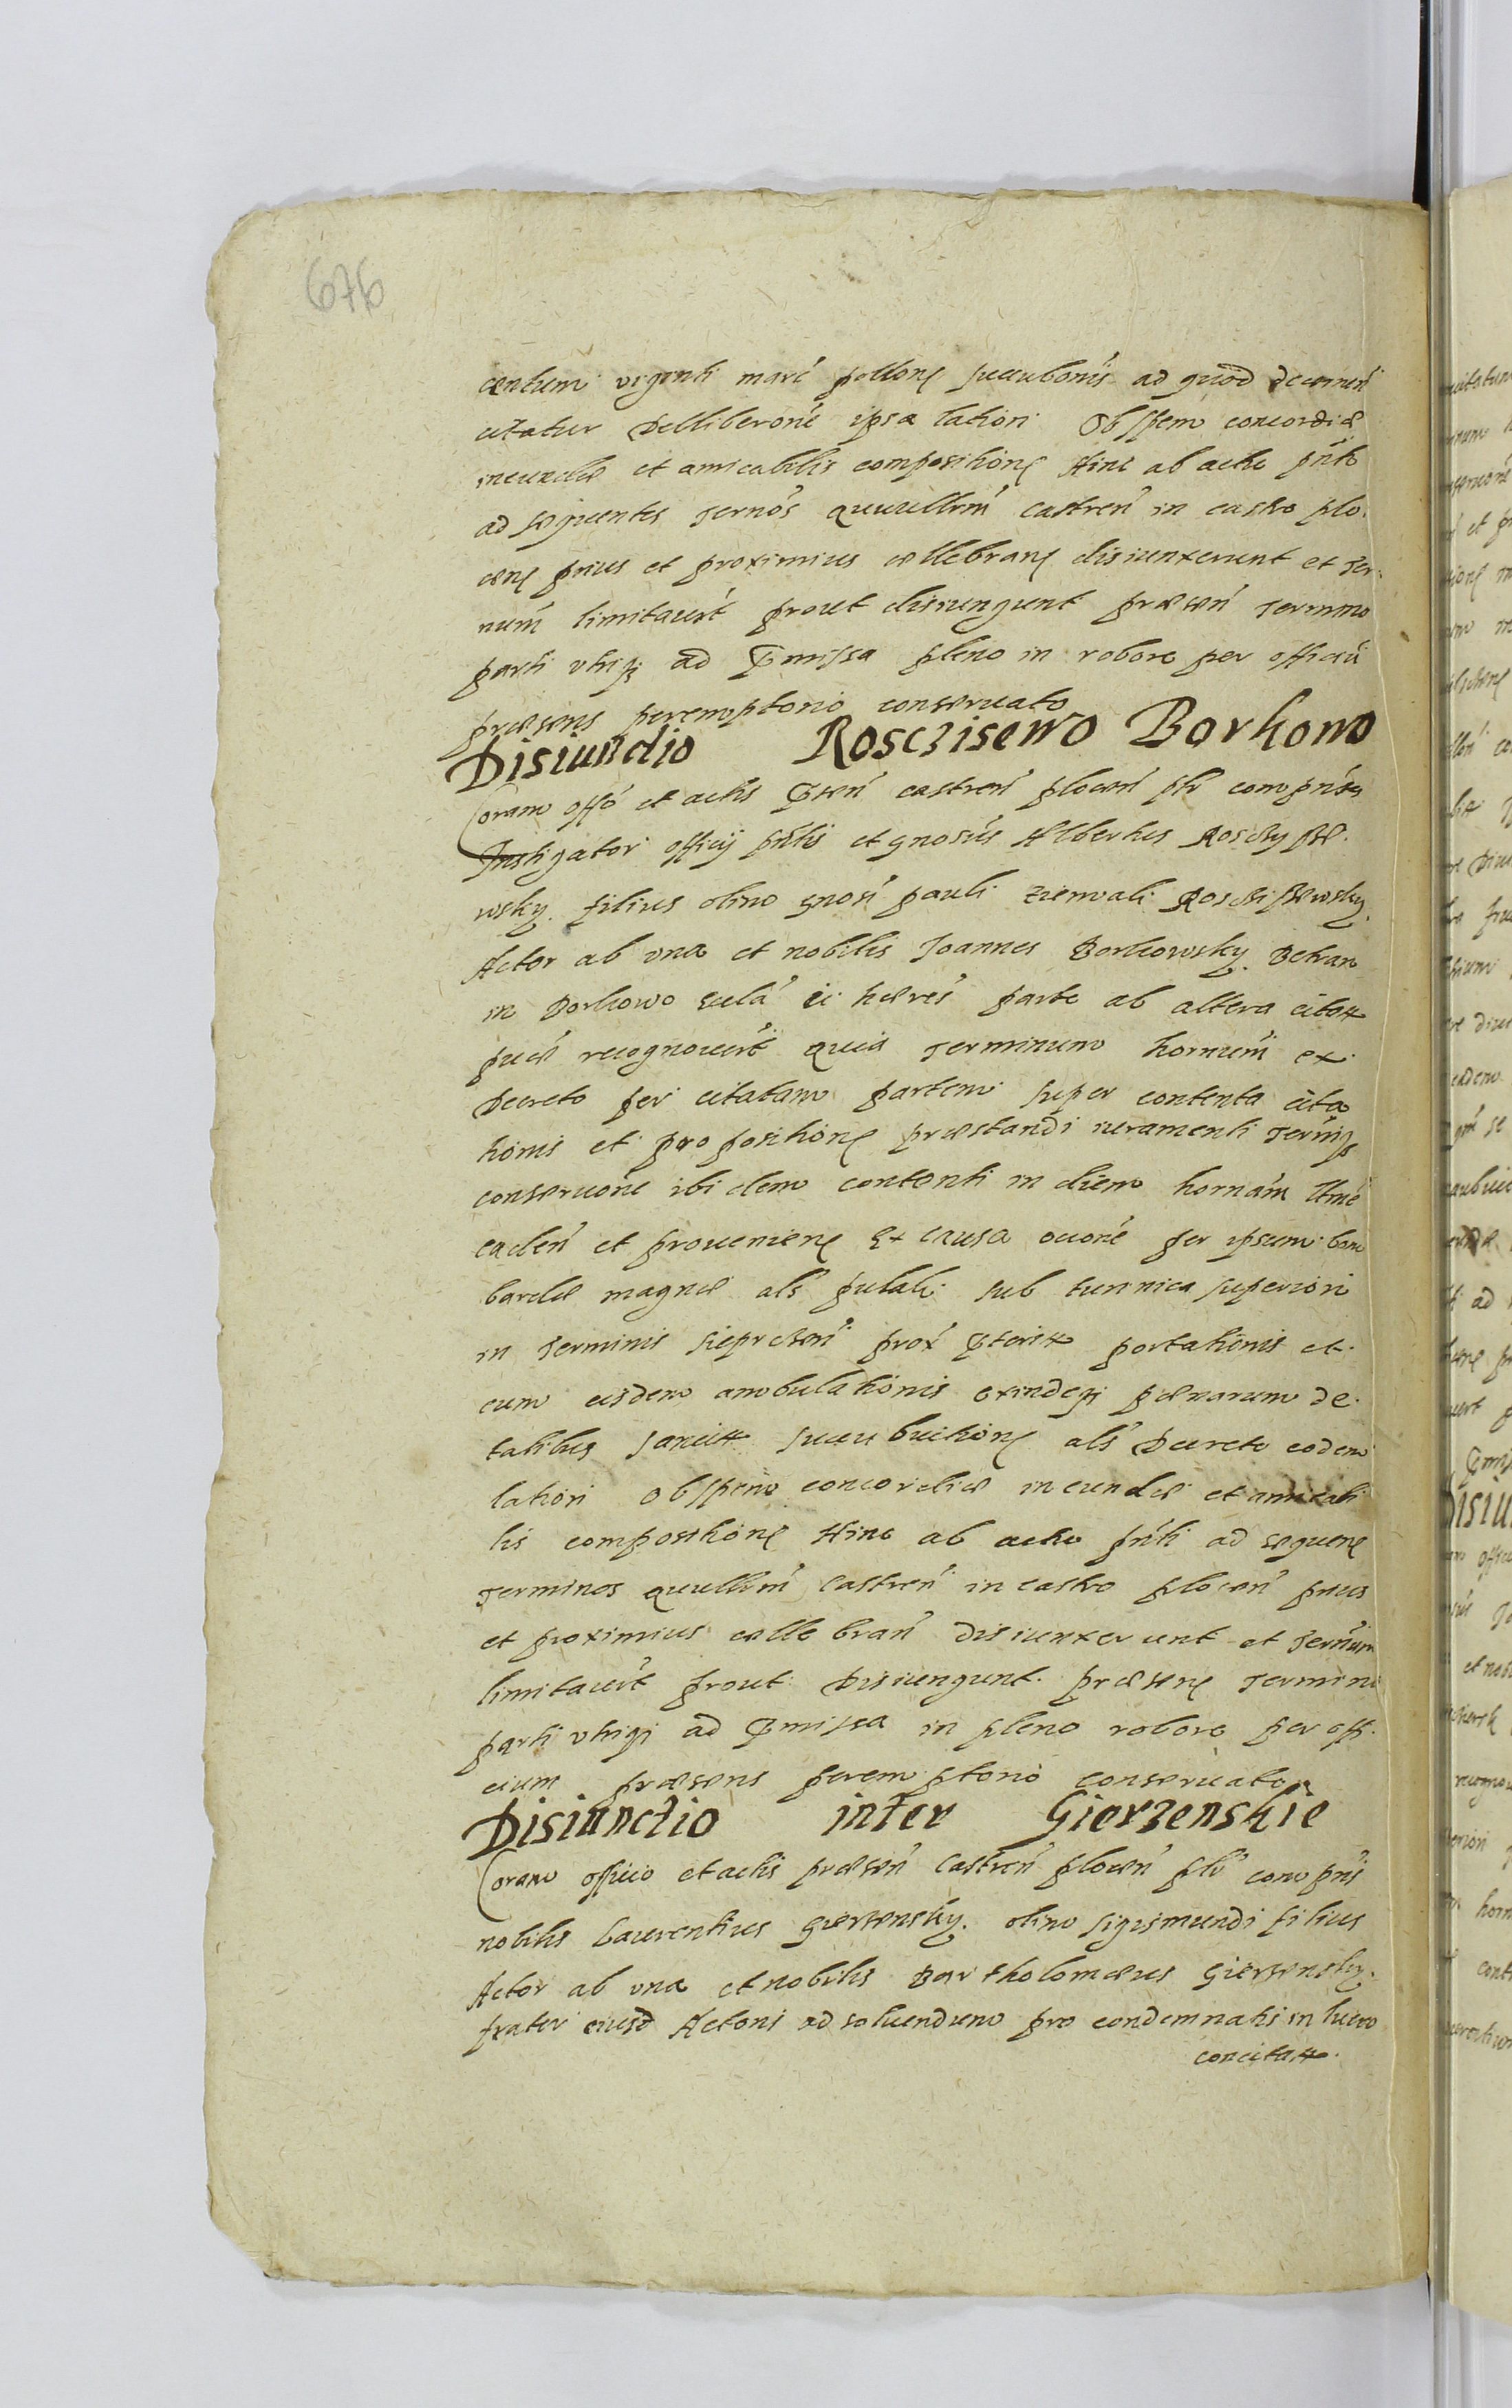 676
centum viginti marc pollone succubonis ad quod decernen
citatur delliberone ipsa lation Ob spem concordiæ
ineundæ et amicabilis compositione Hinc ab actu pnti
ad sequentes termos querellrm castren in castro plo.
cen prius et proximius cellebran disiunxerunt et ter.
num limitaverunt prout disiungunt præsen termino
parti utriq ad præmissa pleno in robore per officiu
præsens peremptorio conservato
Disiunctio Rosczisewo Borkowo
Coram offo et actis præsen castren plocen plr comparen
Instigator officij pntis et gnosus Albertus Rosczysse.
wsky. filius olim gnosi pauli Rosczissewsky.
Actor ab una et nobilis Joannes Borkowsky.
in Borkowo hæres parte ab altera citat
recognoverunt quia terminum hornum ex
Decreto per citatam partem super contenta cita
tionis et propositione præstandi iuramenti termiq
conservone ibidem contenti in diem hornam
caden et provenien Ex causa per ipsum bom
bardæ magnæ als sub tunnica superiori
in terminis sieprcen prox præterit portationis et
cum eisdem ambulationis exindeq pænarum de
talibus sancit succubuitione als Decreto eodem
lation ob spem concordiæ ineundæ et amicabi
lis compositione Hinc ab actu pnti ad sequen
terminos querellrm castren in castro plocen prius
et proximius cellebran disiunxerunt et termnum
limitaverunt prout Disiungunt. præsen termino
parti utriq ad præmissa in pleno robore per offi.
cium præsens peremptorio conservato
Disiunctio inter Gierzenskie
Coram officio et actis præsen castren plocen plr comparen
nobilis Laurentius Gierzensky. olim Sigismundi filius
Actor ab una et nobilis Bartholomæus Gierzensky.
frater eiusd Actoris ad solvendum pro condemnatis in lucro
concitat.